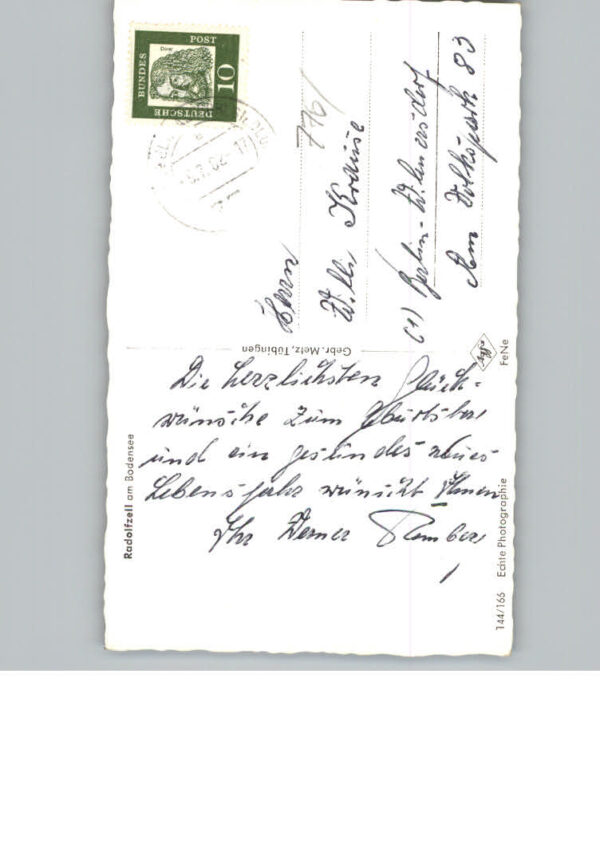 Die herzlichsten Glück-
wünsche zum Geburtstag
und ein gesundes neues
Lebensjahr wünscht Ihnen
Ihr Werner
Herrn
Willi Krause
(1) Berlin-Wilmersdorf
Am Volkspark 83
776/
DEUTSCHE
BUNDES
POST
10
Gebr. Metz, Tübingen
Radolfzell am Bodensee
144/166 Echte Photographie
FeNe